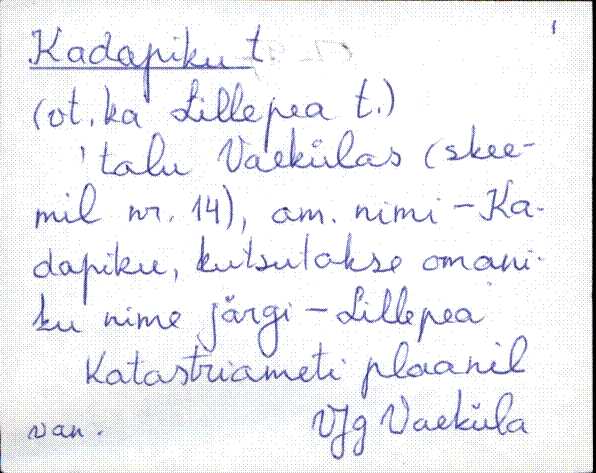 1
Kadapiku t
(vt. ka Lillepea t.)
talu Vaekülas (skee-
mil nr. 14), am. nimi - Ka-
dapiku, kutsutakse omani-
ku nime järgi - Lillepea
Katastriameti plaanil
van. VJg Vaeküla